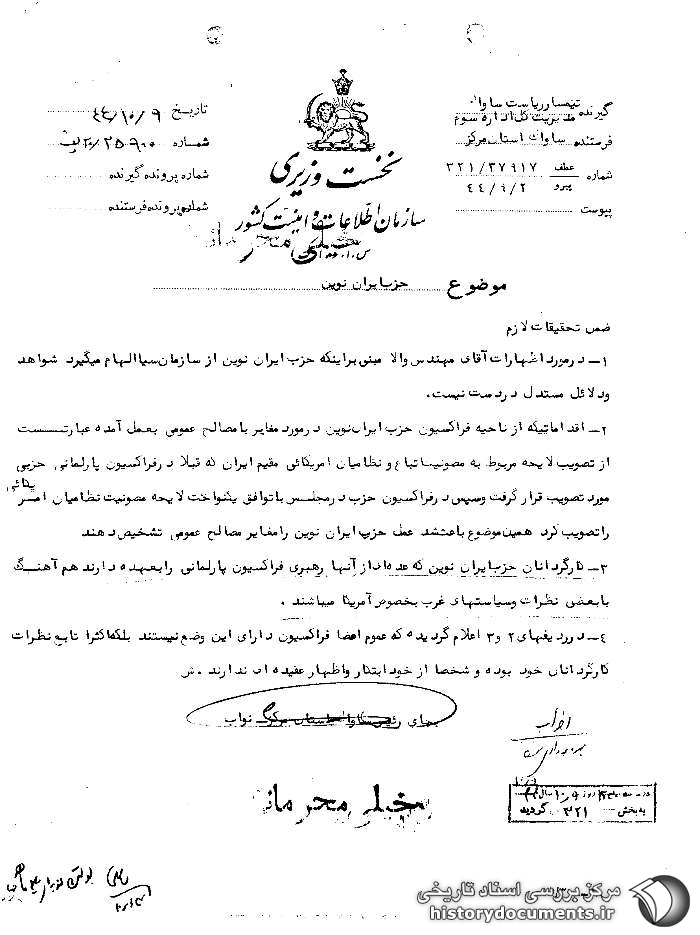 گیرنده تیمسار ریاست ساواک
مدیریت کل اداره سوم
فرستنده ساواک استان مرکز
شماره عطف ۳۲۱/۳۷۹۱۷
پیرو ۴۴/۹/۲
پیوست
نخست وزیری
سازمان اطلاعات و امنیت کشور
خیلی محرمانه
تاریخ ۴۴/۱۰/۹
شماره ۲۰/۲۵۹۰۰ف
شماره پرونده گیرنده
شماره پرونده فرستنده
موضوع حزب ایران نوین
ضمن تحقیقات لازم
۱ـ در مورد اظهارات آقای مهندس والا مبنی بر اینکه حزب ایران نوین از سازمان سیا الهام میگیرد شواهد
ودلائل مستدل در دست نیست.
۲ـ اقداماتیکه از ناحیه فراکسیون حزب ایران نوین در مورد مغایر با مصالح عمومی بعمل آمده عبارتست
از تصویب لایحه مربوط به مصونیت اتباع و نظامیان امریکائی مقیم ایران که قبلا در فراکسیون پارلمانی حزبی
مورد تصویب قرار گرفت وسپس در فراکسیون حزب در مجلس با توافق یکنواخت لایحه مصونیت نظامیان امریکائی
را تصویب کرد همین موضوع باعث شد عمل حزب ایران نوین را مغایر مصالح عمومی تشخیص دهند
۳ـ کارگردانان حزب ایران نوین که عده ای از آنها رهبری فراکسیون پارلمانی را بعهده دارند هم آهنگ
با بعضی نظرات وسیاستهای غرب بخصوص آمریکا میباشند .
۴ـ در ردیفهای ۲ و۳ اعلام گردیده که عموم اعضا فراکسیون دارای این وضع نیستند بلکه اکثرا تابع نظرات
کارگردانان خود بوده و شخصا از خود ابتکار واظهار عقیده ای ندارند . ش
بجای رئیس ساواک استان مرکز نواب
خیلی محرمانه
به بخش ۳۲۱ گردید
مرکز بررسی اسناد تاریخی
historydocuments.ir